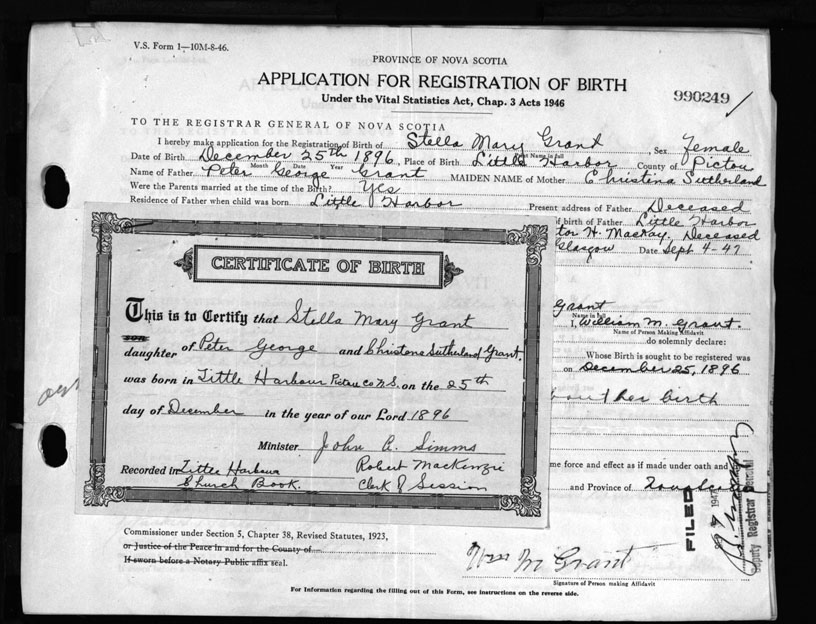 V.S. Form 1—10M-8-46.
PROVINCE OF NOVA SCOTIA
APPLICATION FOR REGISTRATION OF BIRTH
Under the Vital Statistics Act, Chap. 3 Acts 1946
990249
TO THE REGISTRAR GENERAL OF NOVA SCOTIA
I hereby make application for the Registration of Birth of Stella Mary Grant, Sex Female
Name in full
Date of Birth December 25th 1896, Place of Birth Little Harbor County of Pictou
Month Date Year
Name of Father Peter George Grant MAIDEN NAME of Mother Christina Sutherland
Were the Parents married at the time of the Birth? Yes
Residence of Father when child was born Little Harbor Present address of Father Deceased
of birth of Father Little Harbor
tor H. MacKay, Deceased
Glasgow Date Sept 4-47
CERTIFICATE OF BIRTH
This is to Certify that Stella Mary Grant
son
daughter of Peter George and Christone Sutherland Grant,
was born in Little Harbour Pictou Co N.S. on the 25th
day of December in the year of our Lord 1896
Minister John A. Simms
Recorded in Little Harbour Robert MacKenzie
Church Book. Clerk of Session
Grant
Name in full
I, William M. Grant.
Name of Person Making Affidavit
do solemnly declare:
Whose Birth is sought to be registered was
on December 25, 1896
her birth
me force and effect as if made under oath and
and Province of
FILED
Deputy Registrar General
Commissioner under Section 5, Chapter 38, Revised Statutes, 1923,
or Justice of the Peace in and for the County of
If sworn before a Notary Public affix seal.
Wm M Grant
Signature of Person making Affidavit
For Information regarding the filling out of this Form, see instructions on the reverse side.